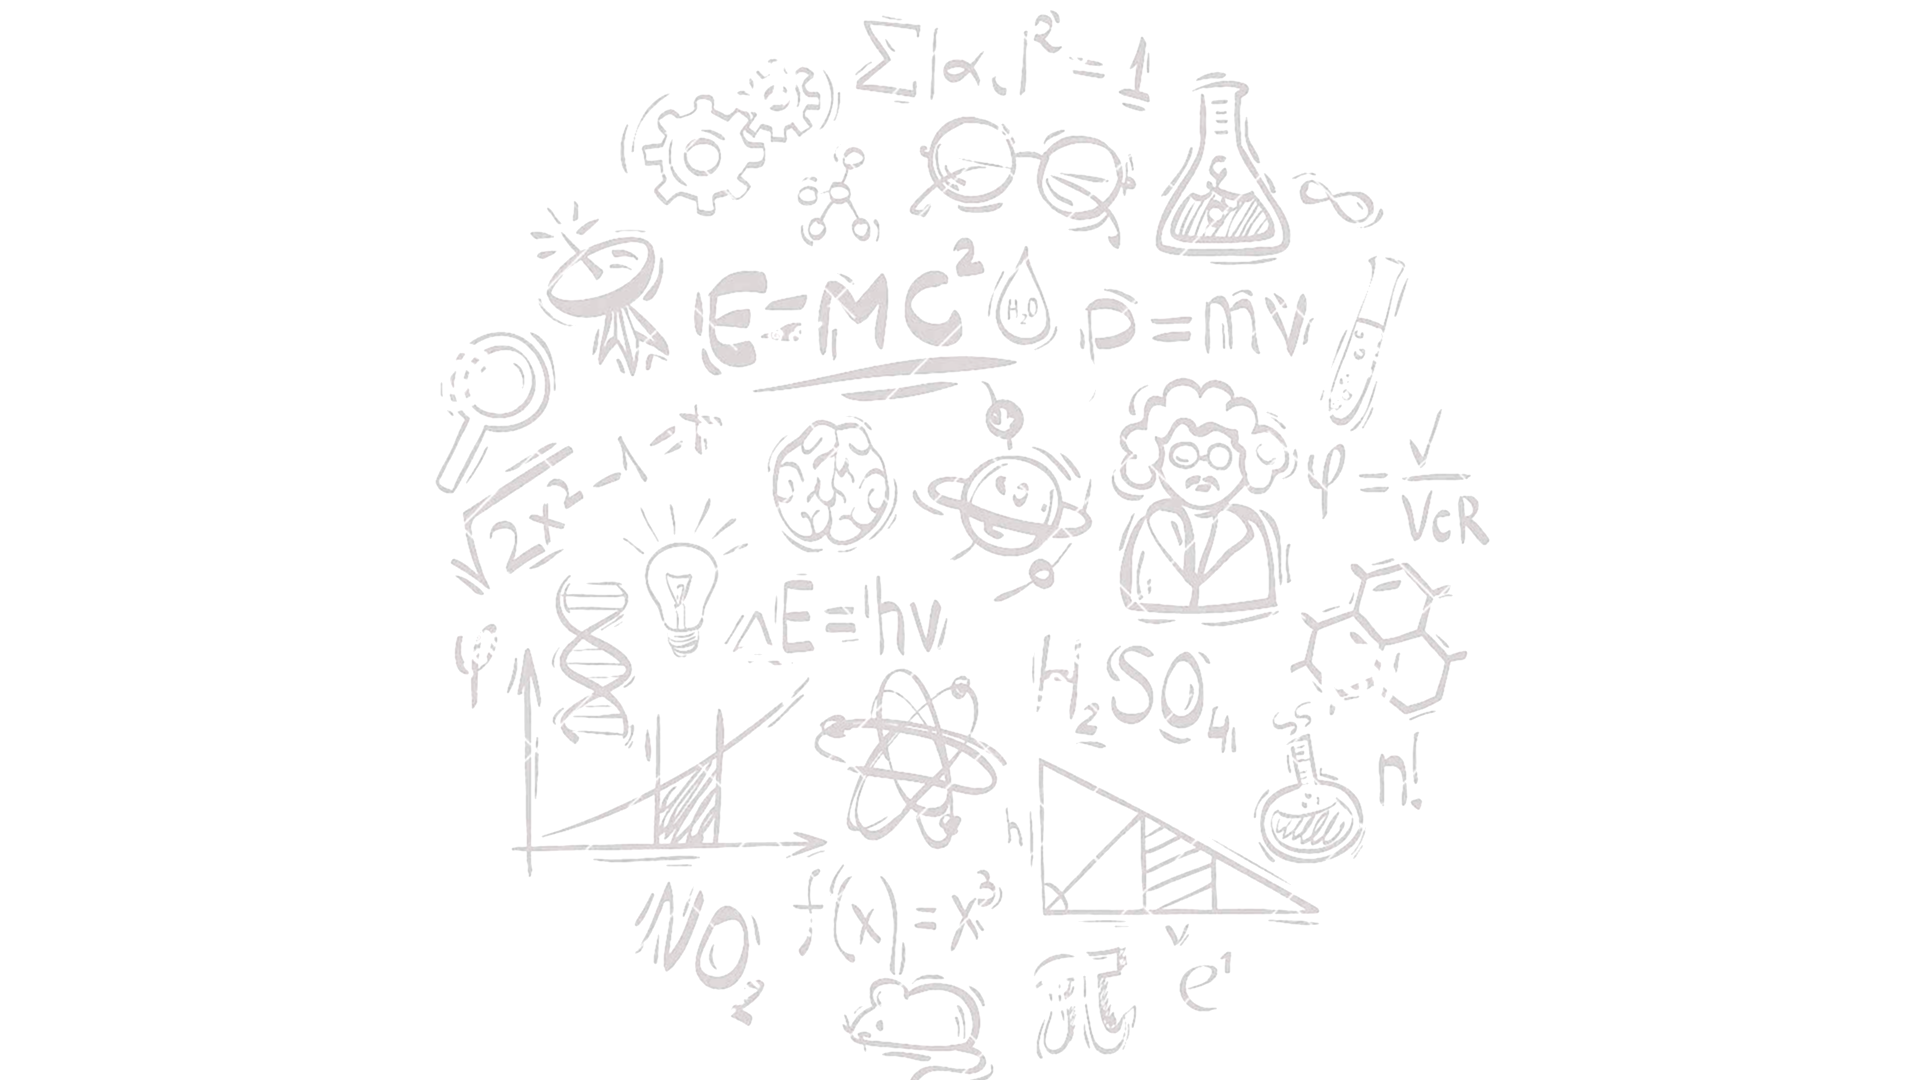 Σ|α.|² = 1
E=MC²
H₂O
P=mv
√2x²-1
φ = v/VcR
E=hv
φ
H₂SO₄
n!
h
NO₂
f(x)=x³
v
π
e¹